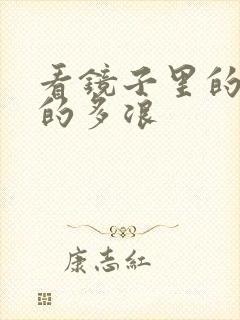 看镜子里的
的多浪
康志红